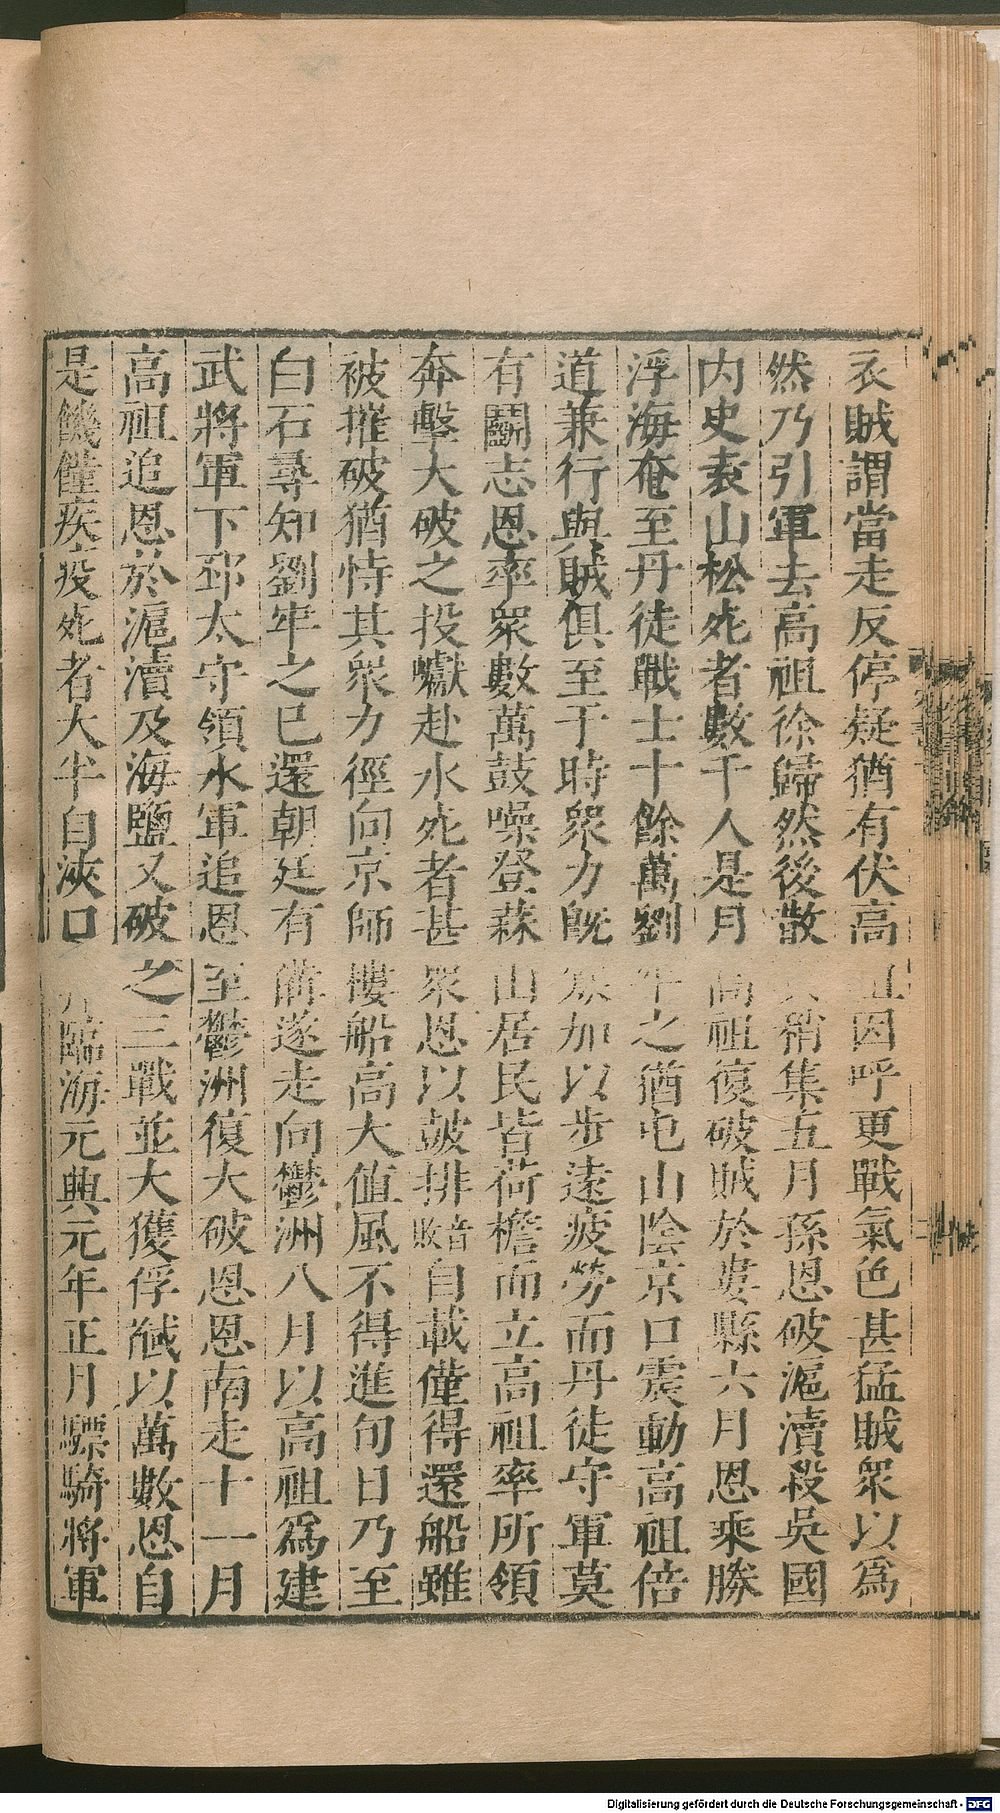 衣賊謂當走反停疑猶有伏高祖因呼更戰氣色甚猛賊衆以爲
然乃引軍去高祖徐歸然後散兵稍集五月孫恩破滬瀆殺吳國
内史袁山松死者數千人是月高祖復破賊於婁縣六月恩乘勝
浮海奄至丹徒戰士十餘萬劉牢之猶屯山陰京口震動高祖倍
道兼行與賊俱至于時衆力旣寡加以步遠疲勞而丹徒守軍莫
有鬭志恩率衆數萬鼓噪登蒜山居民皆荷檐而立高祖率所領
奔擊大破之投巘赴水死者甚衆恩以鼓排音敗自載僅得還船雖
被摧破猶恃其衆力徑向京師樓船高大值風不得進旬日乃至
白石尋知劉牢之已還朝廷有備遂走向鬱洲八月以高祖爲建
武將軍下邳太守領水軍追恩至鬱洲復大破恩恩南走十一月
高祖追恩於滬瀆及海鹽又破之三戰並大獲俘馘以萬數恩自
是饑饉疾疫死者大半自浹口奔臨海元興元年正月驃騎將軍
Digitalisierung gefördert durch die Deutsche Forschungsgemeinschaft - DFG